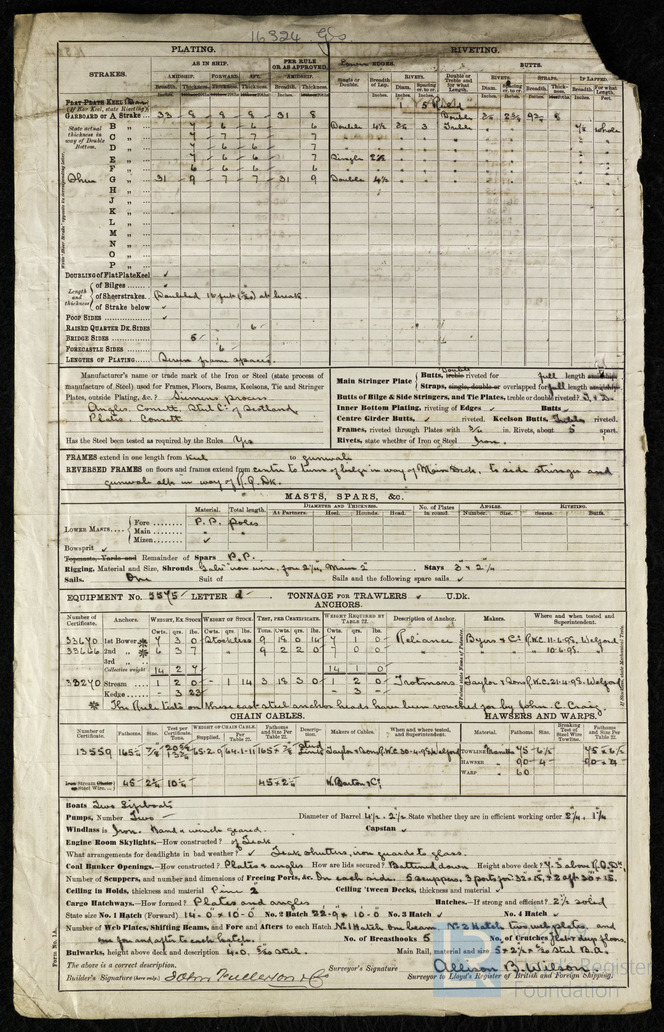 16324 Gls
PLATING. RIVETING.
AS IN SHIP. PER RULE OR AS APPROVED. EDGES. BUTTS.
STRAKES. AMIDSHIP. FORWARD. AFT. AMIDSHIP. Single or Double. Breadth of Lap. RIVETS. Double or Treble and for what Length. RIVETS. STRAPS. IF LAPPED.
Breadth. Thickness. Thickness. Thickness. Breadth. Thickness. Diam. Spacing cr. to cr. Diam. Spacing cr. to cr. Breadth. Thickness. Breadth. For what Length.
FLAT PLATE KEEL
(If Bar Keel, state Riveting) 1 5
GARBOARD or A Strake 33 8 8 8 31 8 Double
State actual thickness in way of Double Bottom.
B " 7 6 6 6 Double 4½ ¾ 3 Treble 7/8 whole
C " 7 7 7 7
D " 7 6 6 7
E " 7 6 6 7 Single
F " 6 6 6 6
G " 31 9 7 7 31 9 Double 4½
H "
J "
K "
L "
M "
N "
O "
P "
DOUBLING of Flat Plate Keel ✓
Length and thickness
of Bilges ✓
of Sheerstrakes Doubled 15 feet at break.
of Strake below ✓
POOP SIDES ✓
RAISED QUARTER DK. SIDES 6
BRIDGE SIDES 5
FORECASTLE SIDES 6
LENGTHS OF PLATING Seven frame spaces.
Manufacturer's name or trade mark of the Iron or Steel (state process of
manufacture of Steel) used for Frames, Floors, Beams, Keelsons, Tie and Stringer
Plates, outside Plating, &c. ? Siemens process
Angles. Consett, Steel Co. of Scotland
Plates Consett
Has the Steel been tested as required by the Rules Yes
Main Stringer Plate Butts, treble riveted for full length amidships
Straps, single, double or overlapped for full length amidships
Butts of Bilge & Side Stringers, and Tie Plates, treble or double riveted?
Inner Bottom Plating, riveting of Edges ✓ Butts ✓
Centre Girder Butts, ✓ riveted. Keelson Butts, Treble riveted.
Frames, riveted through Plates with ¾ in. Rivets, about 5 apart.
Rivets, state whether of Iron or Steel Iron.
FRAMES extend in one length from keel to gunwale
REVERSED FRAMES on floors and frames extend from centre to turn of bilge in way of Main Deck, to side stringer and
gunwale alt. in way of R.Q.Dk.
MASTS, SPARS, &c.
Material. Total length. DIAMETER AND THICKNESS. No. of Plates in round. ANGLES. RIVETING.
At Partners. Heel. Hounds. Head. Number. Size. Seams. Butts.
LOWER MASTS
Fore P.P. Poles
Main "
Mizen ✓
Bowsprit ✓
Topmasts, Yards and Remainder of Spars P.P.
Rigging, Material and Size, Shrouds Galv iron wire, fore 2¼, Main 2 Stays 3 & 2¼
Sails. One Suit of Sails and the following spare sails ✓
EQUIPMENT NO. 3575 LETTER d TONNAGE FOR TRAWLERS ✓ U.Dk.
ANCHORS.
Number of Certificate. Anchors. WEIGHT, EX STOCK WEIGHT OF STOCK. TEST, PER CERTIFICATE. WEIGHT REQUIRED BY TABLE 22. Description of Anchor. Makers. Where and when tested and Superintendent.
Cwts. qrs. lbs. Cwts. qrs. lbs. Tons. Cwts. qrs. lbs. Cwts. qrs. lbs.
33670 1st Bower 7 3 0 Stockless 9 18 0 14 7 1 0 Reliance Byers & Co. P.W.C. 11-6-98. Welford
33666 2nd " 6 3 7 9 2 2 0 7 0 0 " " 10-6-98. "
3rd "
Collective weight 14 2 7 14 1 0
33270 Stream 1 2 0 - 1 14 3 18 3 0 1 2 0 Trotmans Taylor & Sons P.W.C. 21-4-98. Welford
Kedge - 3 23 - 3 -
The Rule tests on these cast steel anchor heads have been vouched for by John. C. Craig.
CHAIN CABLES. HAWSERS AND WARPS.
Number of Certificate. Fathoms. Size. Test per Certificate. Tons. WEIGHT OF CHAIN CABLE. Supplied. Per Table 22. Fathoms and Size Per Table 22. Description. Makers of Cables. When and where tested, and Superintendent. Material. Fathoms. Size. Breaking Test of Steel Wire Towline. Fathoms and Size Per Table 22.
13559 165 7/8 65-2-9 64-1-11 165 x 7/8 Stud Link Taylor & Sons P.W.C. 30-4-98 Welford TOWLINE Manilla 75 - 6½ 75 x 6½
HAWSER " 90 - 4 90 x 4
WARP " 60
45 2¼ 10¼ 45 x 2¼ W. Barton & Co.
Boats Two Lifeboats
Pumps, Number Two Diameter of Barrel 4½. 2½ State whether they are in efficient working order
Windlass is Iron. Hand & winch geared. Capstan ✓
Engine Room Skylights.—How constructed ? of Teak
What arrangements for deadlights in bad weather ? Teak shutters, iron guards to glass.
Coal Bunker Openings.—How constructed ? Plates & angles How are lids secured ? Battened down Height above deck ? 4.3 above R.Q.Dk.
Number of Scuppers, and number and dimensions of Freeing Ports, &c. On each side. 5 scuppers, 3 ports for 32 x 15, & 2 aft 30 x 15.
Ceiling in Holds, thickness and material Pine 2 Ceiling 'tween Decks, thickness and material ✓
Cargo Hatchways.—How formed ? Plates and angles Hatches.—If strong and efficient ? 2½ solid
State size No. 1 Hatch (Forward) 14-0 x 10-0 No. 2 Hatch 22-9 x 10-0 No. 3 Hatch ✓ No. 4 Hatch ✓
Number of Web Plates, Shifting Beams, and Fore and Afters to each Hatch No 1 Hatch one beam No 2 Hatch two web plates, and
one fore and after to each hatch. No. of Breasthooks 5 No. of Crutches
Bulwarks, height above deck and description 4.0, Steel Main Rail, material and size Steel B.A.
The above is a correct description.
Builder's Signature (here only) John Fullerton & Co
Surveyor's Signature Allison B. Wilson
Surveyor to Lloyd's Register of British and Foreign Shipping.
Form No. 1A.
Lloyd's Register
Foundation